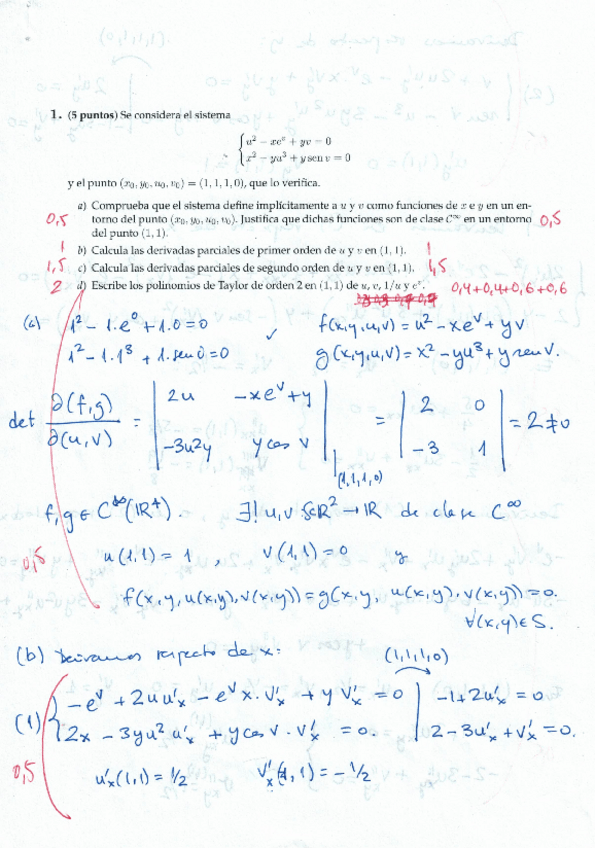 1. (5 puntos) Se considera el sistema
{ u² − xeᵛ + yv = 0
x² − yu³ + y sen v = 0
y el punto (x₀, y₀, u₀, v₀) = (1, 1, 1, 0), que lo verifica.
a) Comprueba que el sistema define implícitamente a u y v como funciones de x e y en un en-
0,5 torno del punto (x₀, y₀, u₀, v₀). Justifica que dichas funciones son de clase C∞ en un entorno 0,5
del punto (1, 1).
1 b) Calcula las derivadas parciales de primer orden de u y v en (1, 1). 1
1,5 c) Calcula las derivadas parciales de segundo orden de u y v en (1, 1). 1,5
2 d) Escribe los polinomios de Taylor de orden 2 en (1, 1) de u, v, 1/u y eᵛ. 0,4+0,4+0,6+0,6
(a) 1² − 1.e⁰ + 1.0 = 0 ✓ f(x,y,u,v) = u² − xeᵛ + yv
1² − 1.1³ + 1.sen 0 = 0 g(x,y,u,v) = x² − yu³ + y sen v.
det ∂(f,g)/∂(u,v) = | 2u −xeᵛ+y ; −3u²y y cos v |(1,1,1,0) = | 2 0 ; −3 1 | = 2 ≠ 0
f, g ∈ C∞(ℝ⁴). ∃! u, v: S⊂ℝ² → ℝ de clase C∞
0,5 u(1,1) = 1 , v(1,1) = 0 y
f(x, y, u(x,y), v(x,y)) = g(x, y, u(x,y), v(x,y)) = 0.
∀(x,y) ∈ S.
(b) Derivamos respecto de x: (1,1,1,0)
(1) { −eᵛ + 2u u'ₓ − eᵛ x. v'ₓ + y v'ₓ = 0 | −1 + 2u'ₓ = 0
2x − 3yu² u'ₓ + y cos v · v'ₓ = 0. | 2 − 3u'ₓ + v'ₓ = 0.
0,5 u'ₓ(1,1) = 1/2 v'ₓ(1,1) = −1/2